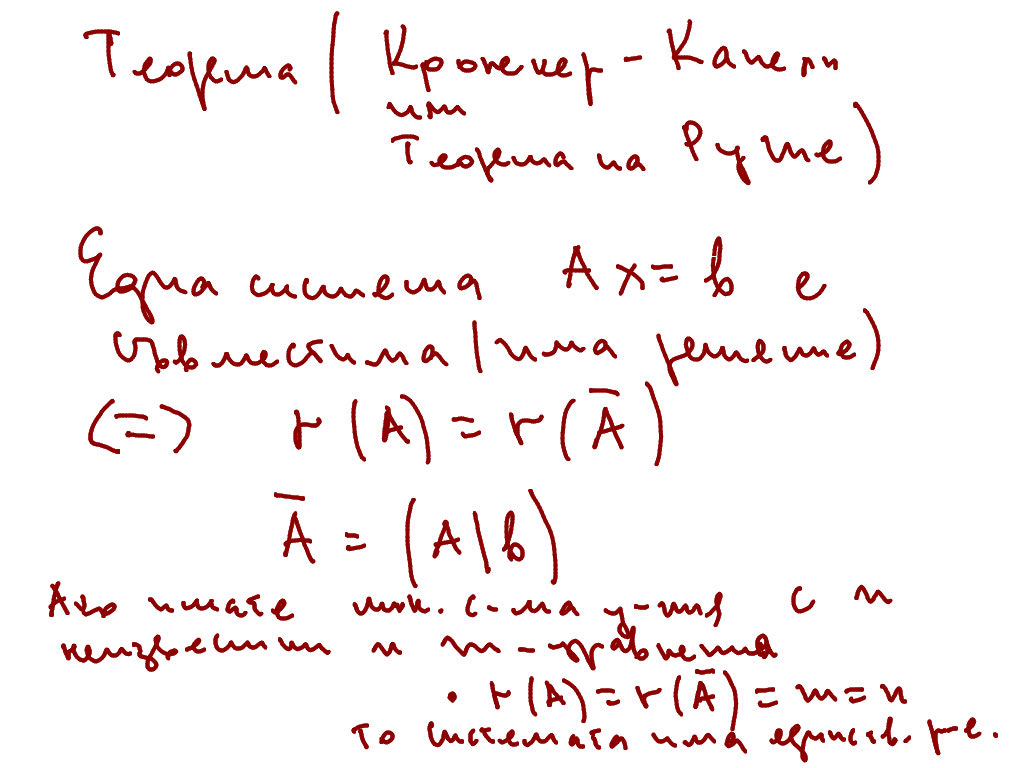 Теорема (Кронекер - Капели
или
Теорема на Руше)
Една система Ax = b е
съвместима (има решение)
(=) r(A) = r(Ā)
Ā = (A|b)
Ако имате лин. с-ма у-ния с n
неизвестни и m-уравнения
• r(A) = r(Ā) = m = n
то системата има единств. ре.